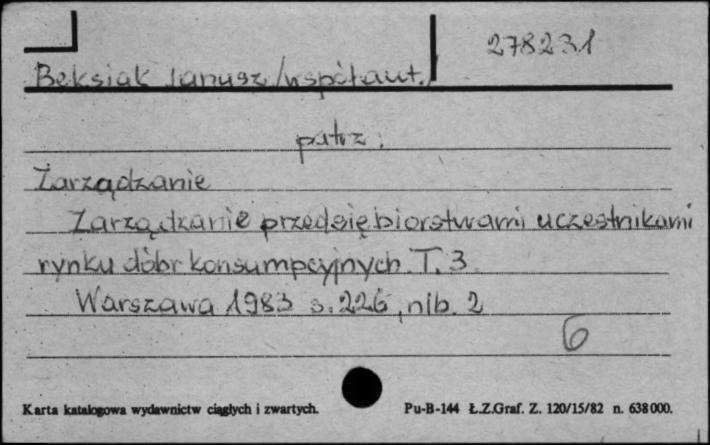 278231
Beksiak Janusz /współaut./
patrz:
Zarządzanie
Zarządzanie przedsiębiorstwami uczestnikami
rynku dóbr konsumpcyjnych. T. 3
Warszawa 1983 s. 226, nlb. 2
6
Karta katalogowa wydawnictw ciągłych i zwartych.
Pu-B-144 Ł.Z.Graf. Z. 120/15/82 n. 638000.